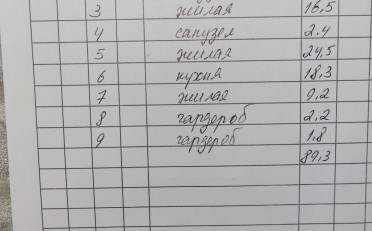 3 жилая 16,5
4 санузел 2.4
5 жилая 24,5
6 кухня 18,3
7 жилая 9,2
8 гардероб 2,2
9 гардероб 1,8
89,3